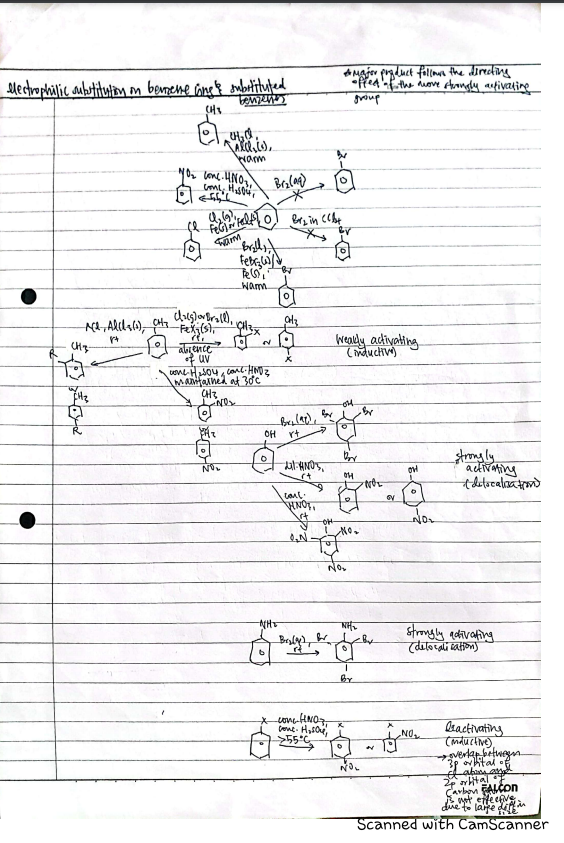 electrophilic substitution on benzene ring & substituted
benzenes
* major product follows the directing
effect of the more strongly activating
group
CH3
CH3Cl,
AlCl3(s),
warm
NO2
conc. HNO3,
conc. H2SO4,
55°C
Br2(aq)
X
Br
Cl
Cl2(g),
Fe(s) or FeCl3(s)
warm
Br2 in CCl4
X
Br
Br2(l),
FeBr3(s)/
Fe(s),
warm
Br
RCl, AlCl3(s),
rt
CH3
Cl2(g) or Br2(l),
FeX3(s),
rt,
absence
of UV
CH3
X
or
CH3
X
weakly activating
(inductive)
R
CH3
or
CH3
R
conc. H2SO4, conc. HNO3
maintained at 30°C
CH3
NO2
or
CH3
NO2
OH
Br2(aq),
rt
OH
Br
Br
Br
dil. HNO3,
rt
OH
NO2
or
OH
NO2
strongly
activating
(delocalisation)
conc.
HNO3,
rt
OH
O2N
NO2
NO2
NH2
Br2(aq),
rt
NH2
Br
Br
Br
strongly activating
(delocalisation)
X
conc. HNO3,
conc. H2SO4,
>55°C
X
NO2
or
X
NO2
Deactivating
(inductive)
→ overlap between
3p orbital of
Cl atom and
2p orbital of
Carbon
is not effective
due to large diff in
size
FALCON
Scanned with CamScanner